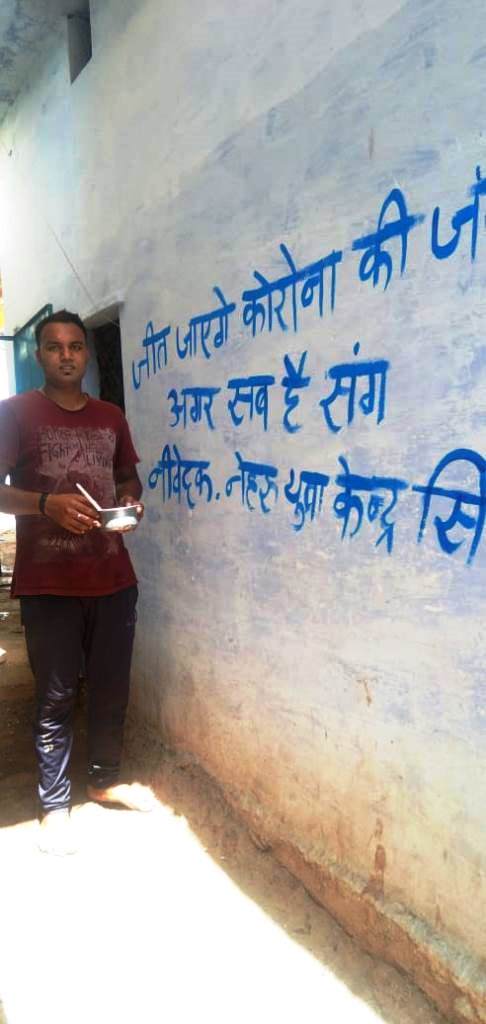 जीत जाएगे कोरोना की जं
अगर सब है संग
नीवेदक. नेहरु युवा केन्द्र सि